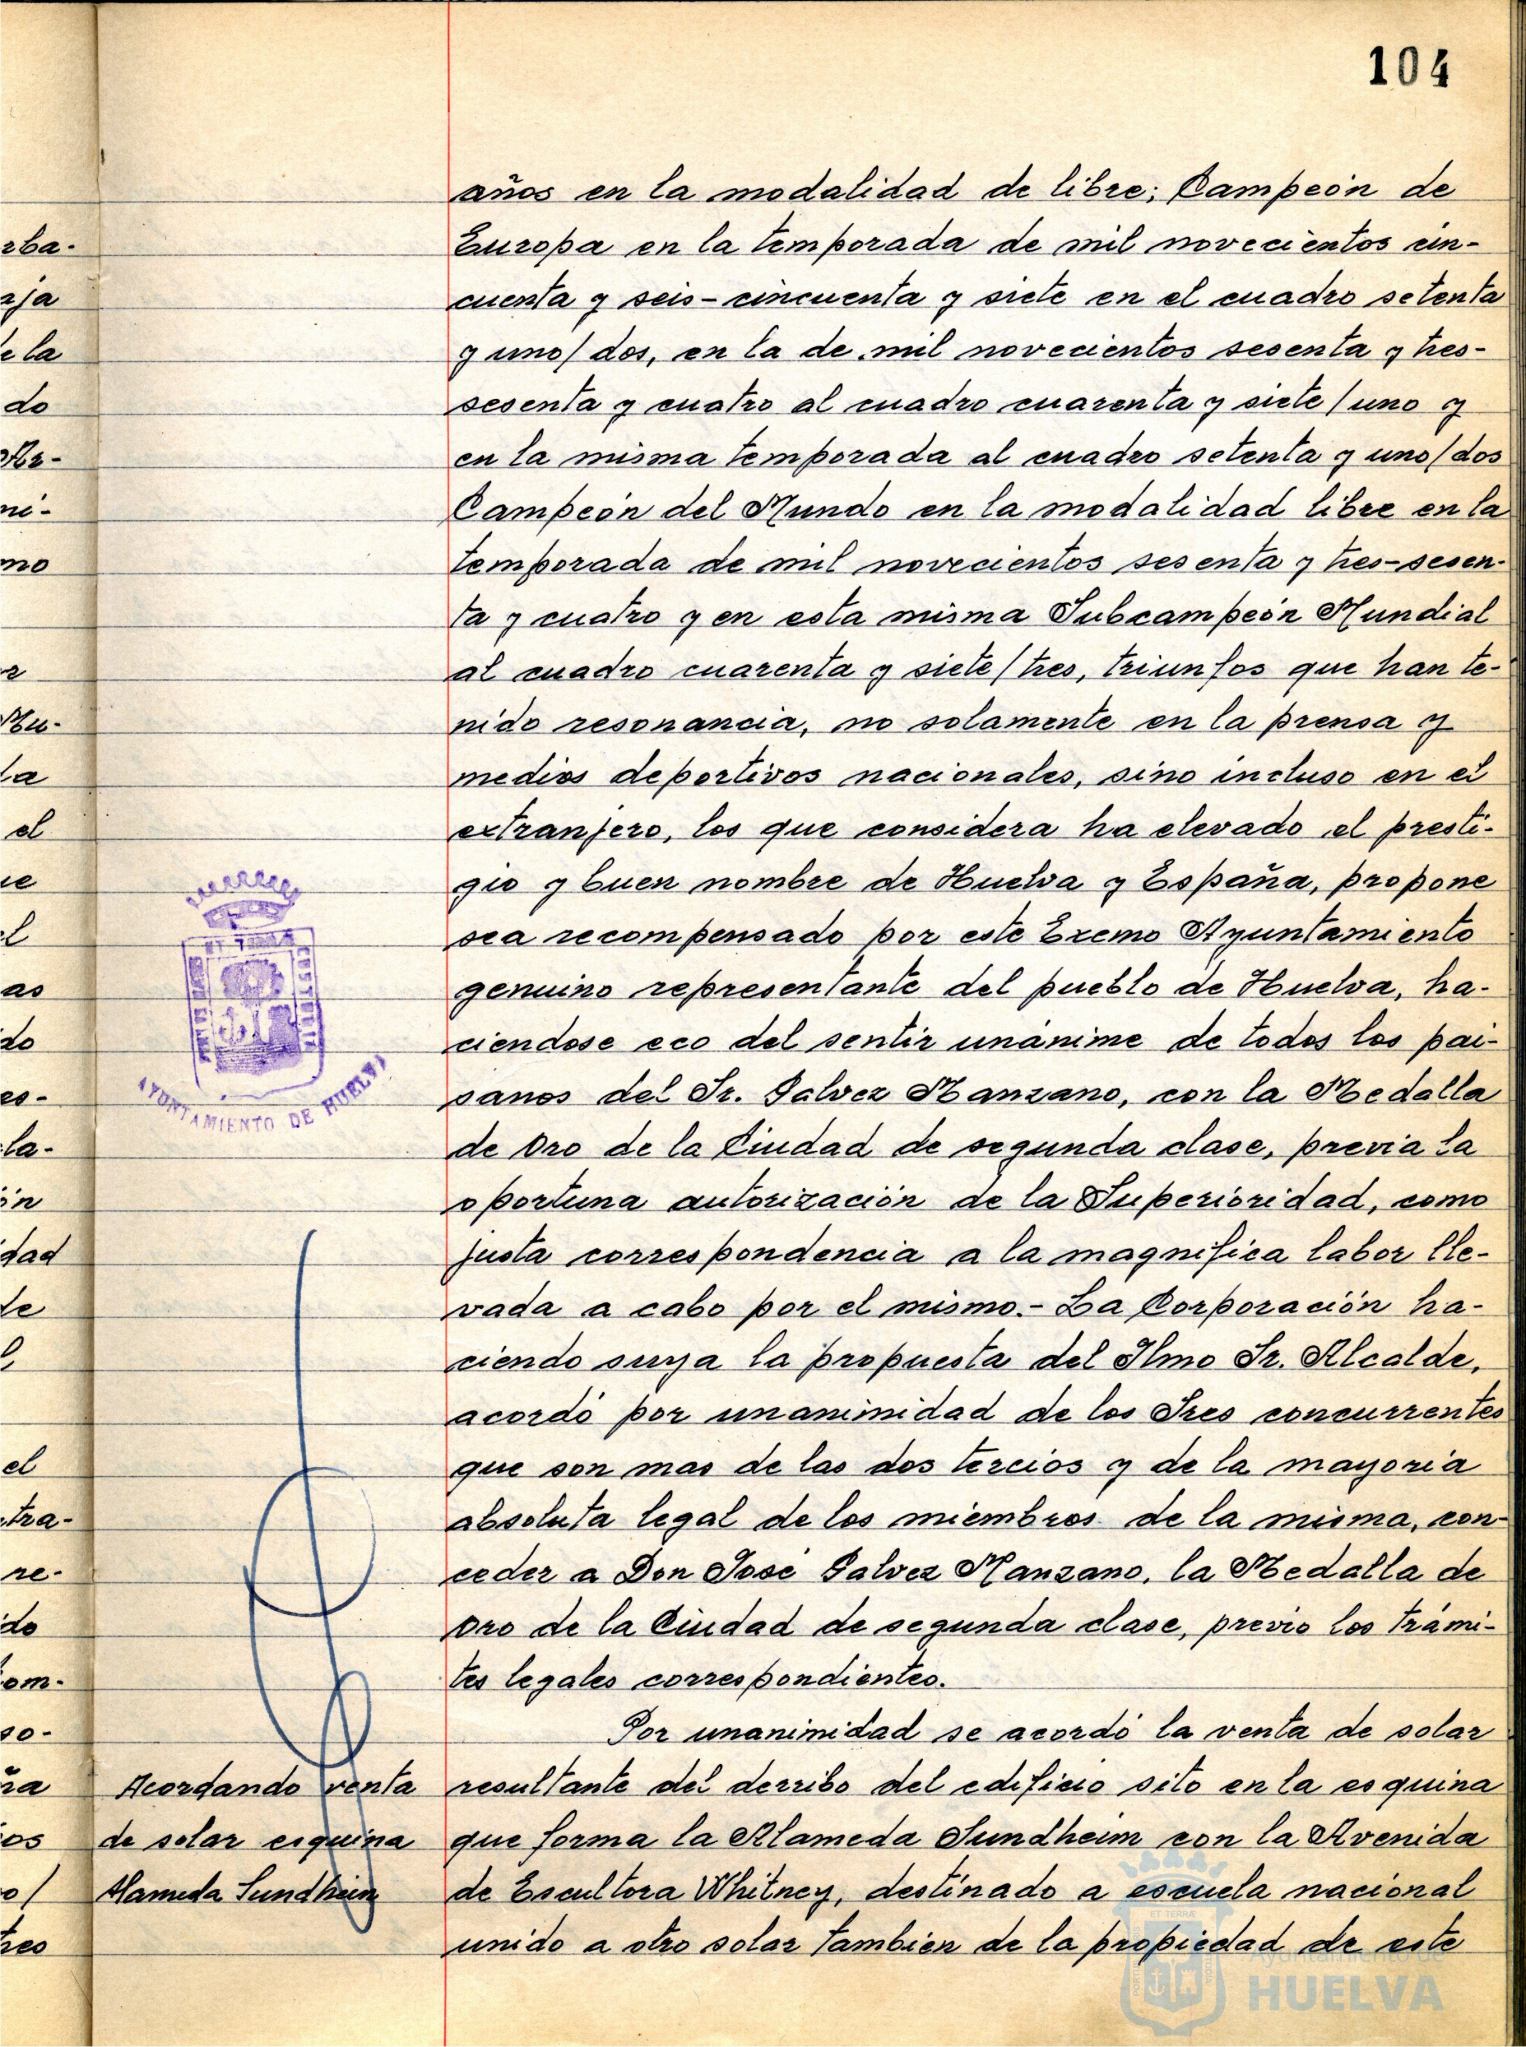 104
años en la modalidad de libre; Campeón de
Europa en la temporada de mil novecientos cin-
cuenta y seis-cincuenta y siete en el cuadro setenta
y uno/dos, en la de mil novecientos sesenta y tres-
sesenta y cuatro al cuadro cuarenta y siete/uno y
en la misma temporada al cuadro setenta y uno/dos
Campeón del Mundo en la modalidad libre en la
temporada de mil novecientos sesenta y tres-sesen-
ta y cuatro y en esta misma Subcampeón Mundial
al cuadro cuarenta y siete/tres, triunfos que han te-
nido resonancia, no solamente en la prensa y
medios deportivos nacionales, sino incluso en el
extranjero, los que considera ha elevado el presti-
gio y buen nombre de Huelva y España, propone
sea recompensado por este Excmo Ayuntamiento
genuino representante del pueblo de Huelva, ha-
ciendose eco del sentir unánime de todos los pai-
sanos del Sr. Galvez Manzano, con la Medalla
de Oro de la Ciudad de segunda clase, previa la
oportuna autorización de la Superioridad, como
justa correspondencia a la magnifica labor lle-
vada a cabo por el mismo.- La Corporación ha-
ciendo suya la propuesta del Ilmo Sr. Alcalde,
acordó por unanimidad de los Sres concurrentes
que son mas de las dos tercios y de la mayoria
absoluta legal de los miembros de la misma, con-
ceder a Don José Galvez Manzano, la Medalla de
Oro de la Ciudad de segunda clase, previo los trámi-
tes legales correspondientes.
Por unanimidad se acordó la venta de solar
resultante del derribo del edificio sito en la esquina
que forma la Alameda Sundheim con la Avenida
de Escultora Whitney, destinado a escuela nacional
unido a otro solar tambien de la propiedad de este
Acordando venta
de solar esquina
Alameda Sundheim
AYUNTAMIENTO DE HUELVA
rba-
aja
de la
do
mi-
mo
la
el
ue
el
as
do
es-
la-
ón
dad
de
el
tra-
re-
do
om-
so-
ña
os
o/
tres
Ayuntamiento de
HUELVA